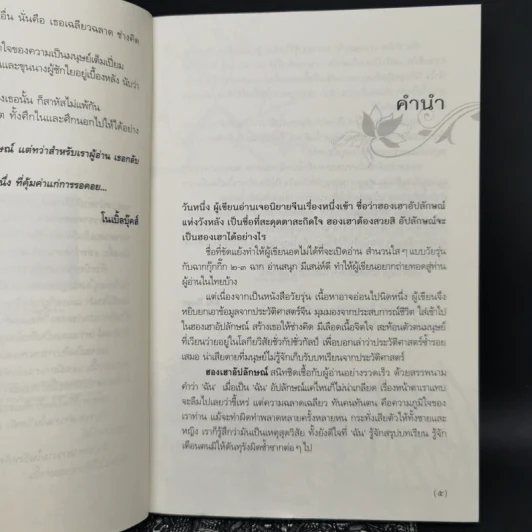 อื่น นั่นคือ เธอเฉลียวฉลาด ช่างคิด
ใจของความเป็นมนุษย์เต็มเปี่ยม
และขุนนางผู้ชักใยอยู่เบื้องหลัง นับว่า
งเธอนั้น ก็สาหัสไม่แพ้กัน
ต ทั้งศึกในและศึกนอกไปให้ได้อย่าง
ษณ์ แต่ทว่าสำหรับเราผู้อ่าน เธอกลับ
นึ่ง ที่คุ้มค่าแก่การรอคอย...
โนเบิ้ลบุ๊คส์
คำนำ
วันหนึ่ง ผู้เขียนอ่านเจอนิยายจีนเรื่องหนึ่งเข้า ชื่อว่าฮองเฮาอัปลักษณ์
แห่งวังหลัง เป็นชื่อที่สะดุดตาสะกิดใจ ฮองเฮาต้องสวยสิ อัปลักษณ์จะ
เป็นฮองเฮาได้อย่างไร
ชื่อที่ขัดแย้งทำให้ผู้เขียนอดไม่ได้ที่จะเปิดอ่าน สำนวนใสๆ แบบวัยรุ่น
กับฉากกุ๊กกิ๊ก ๒-๓ ฉาก อ่านสนุก มีเสน่ห์ดี ทำให้ผู้เขียนอยากถ่ายทอดสู่ท่าน
ผู้อ่านในไทยบ้าง
แต่เนื่องจากเป็นหนังสือวัยรุ่น เนื้อหาอาจอ่อนไปนิดหนึ่ง ผู้เขียนจึง
หยิบยกเอาข้อมูลจากประวัติศาสตร์จีน มุมมองจากประสบการณ์ชีวิต ใส่เข้าไป
ในฮองเฮาอัปลักษณ์ สร้างเธอให้ช่างคิด มีเลือดเนื้อจิตใจ สะท้อนตัวตนมนุษย์
ที่เวียนว่ายอยู่ในโลกียวิสัยชั่วกัปชั่วกัลป์ เพื่อบอกเล่าว่าประวัติศาสตร์ซ้ำรอย
เสมอ น่าเสียดายที่มนุษย์ไม่รู้จักเก็บรับบทเรียนจากประวัติศาสตร์
ฮองเฮาอัปลักษณ์ สนิทชิดเชื้อกับผู้อ่านอย่างรวดเร็ว ด้วยสรรพนาม
คำว่า 'ฉัน' เมื่อเป็น 'ฉัน' อัปลักษณ์แค่ไหนก็ไม่น่าเกลียด เรื่องหน้าตาเราแทบ
จะลืมไปเลยว่าขี้เหร่ แต่ความเฉลียวฉลาด ทันคนทันตน คือความภูมิใจของ
เราท่าน แม้จะทำผิดทำพลาดหลายครั้งหลายหน กระทั่งเสียตัวให้ทั้งชายและ
หญิง เราก็รู้สึกว่ามันเป็นเหตุสุดวิสัย ทั้งยังดีใจที่ 'ฉัน' รู้จักสรุปบทเรียน รู้จัก
เตือนตนมิให้ดันทุรังผิดซ้ำซากต่อๆ ไป
(๕)